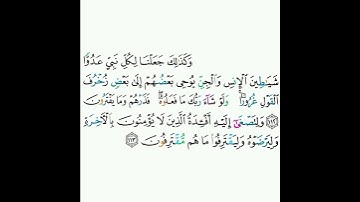 وَكَذَٰلِكَ جَعَلْنَا لِكُلِّ نَبِيٍّ عَدُوًّا
شَيَاطِينَ الْإِنسِ وَالْجِنِّ يُوحِي بَعْضُهُمْ إِلَىٰ بَعْضٍ زُخْرُفَ
الْقَوْلِ غُرُورًا ۚ وَلَوْ شَاءَ رَبُّكَ مَا فَعَلُوهُ ۖ فَذَرْهُمْ وَمَا يَفْتَرُونَ
﴿١١٢﴾ وَلِتَصْغَىٰ إِلَيْهِ أَفْئِدَةُ الَّذِينَ لَا يُؤْمِنُونَ بِالْآخِرَةِ
وَلِيَرْضَوْهُ وَلِيَقْتَرِفُوا مَا هُم مُّقْتَرِفُونَ ﴿١١٣﴾